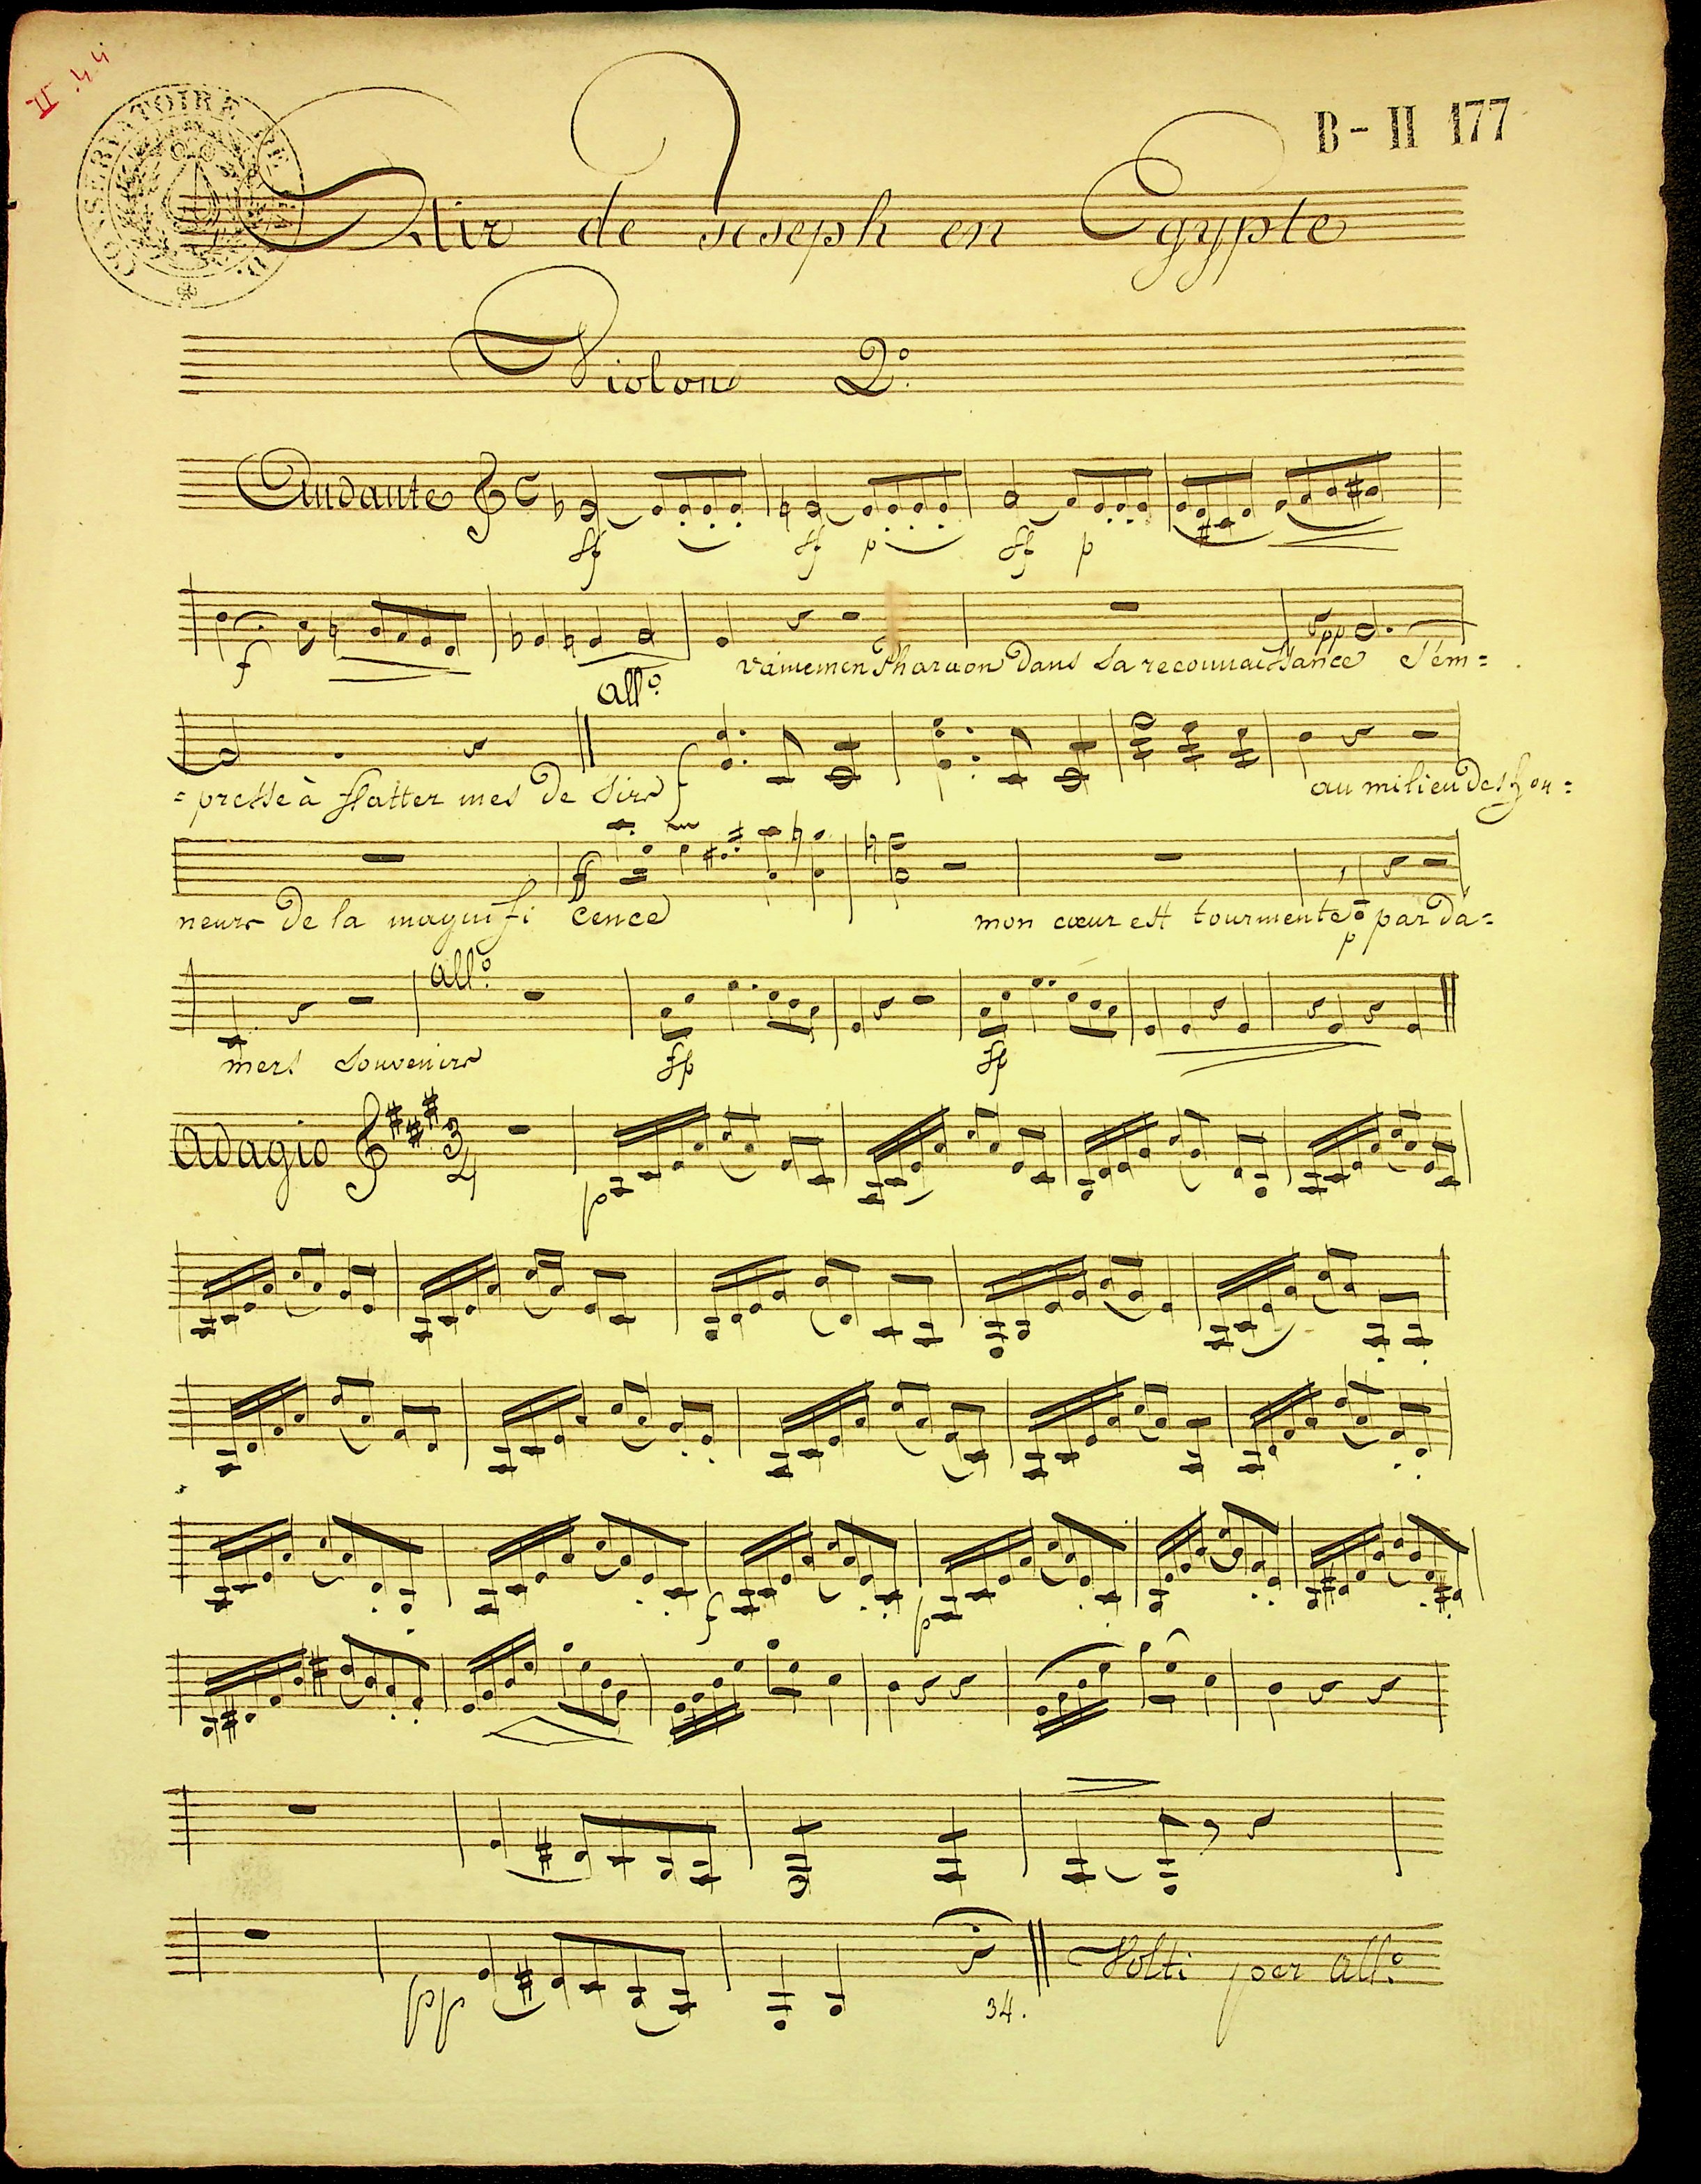 II.44
B-II 177
CONSERVATOIRE DE
Air de Joseph en Egypte
Violono 2º
Andante
sf sf p sf p
f pp
vainemen Pharaon dans sa reconnaissance s'em=
allº
f
=presse à flatter mes de sirs au milieu des hon=
ff
neurs de la magnifi cence mon cœur est tourmenté par da=
p
allº
mers souvenirs
fp fp
Adagio 3/4
p
f p
pp
34.
Volti per allº